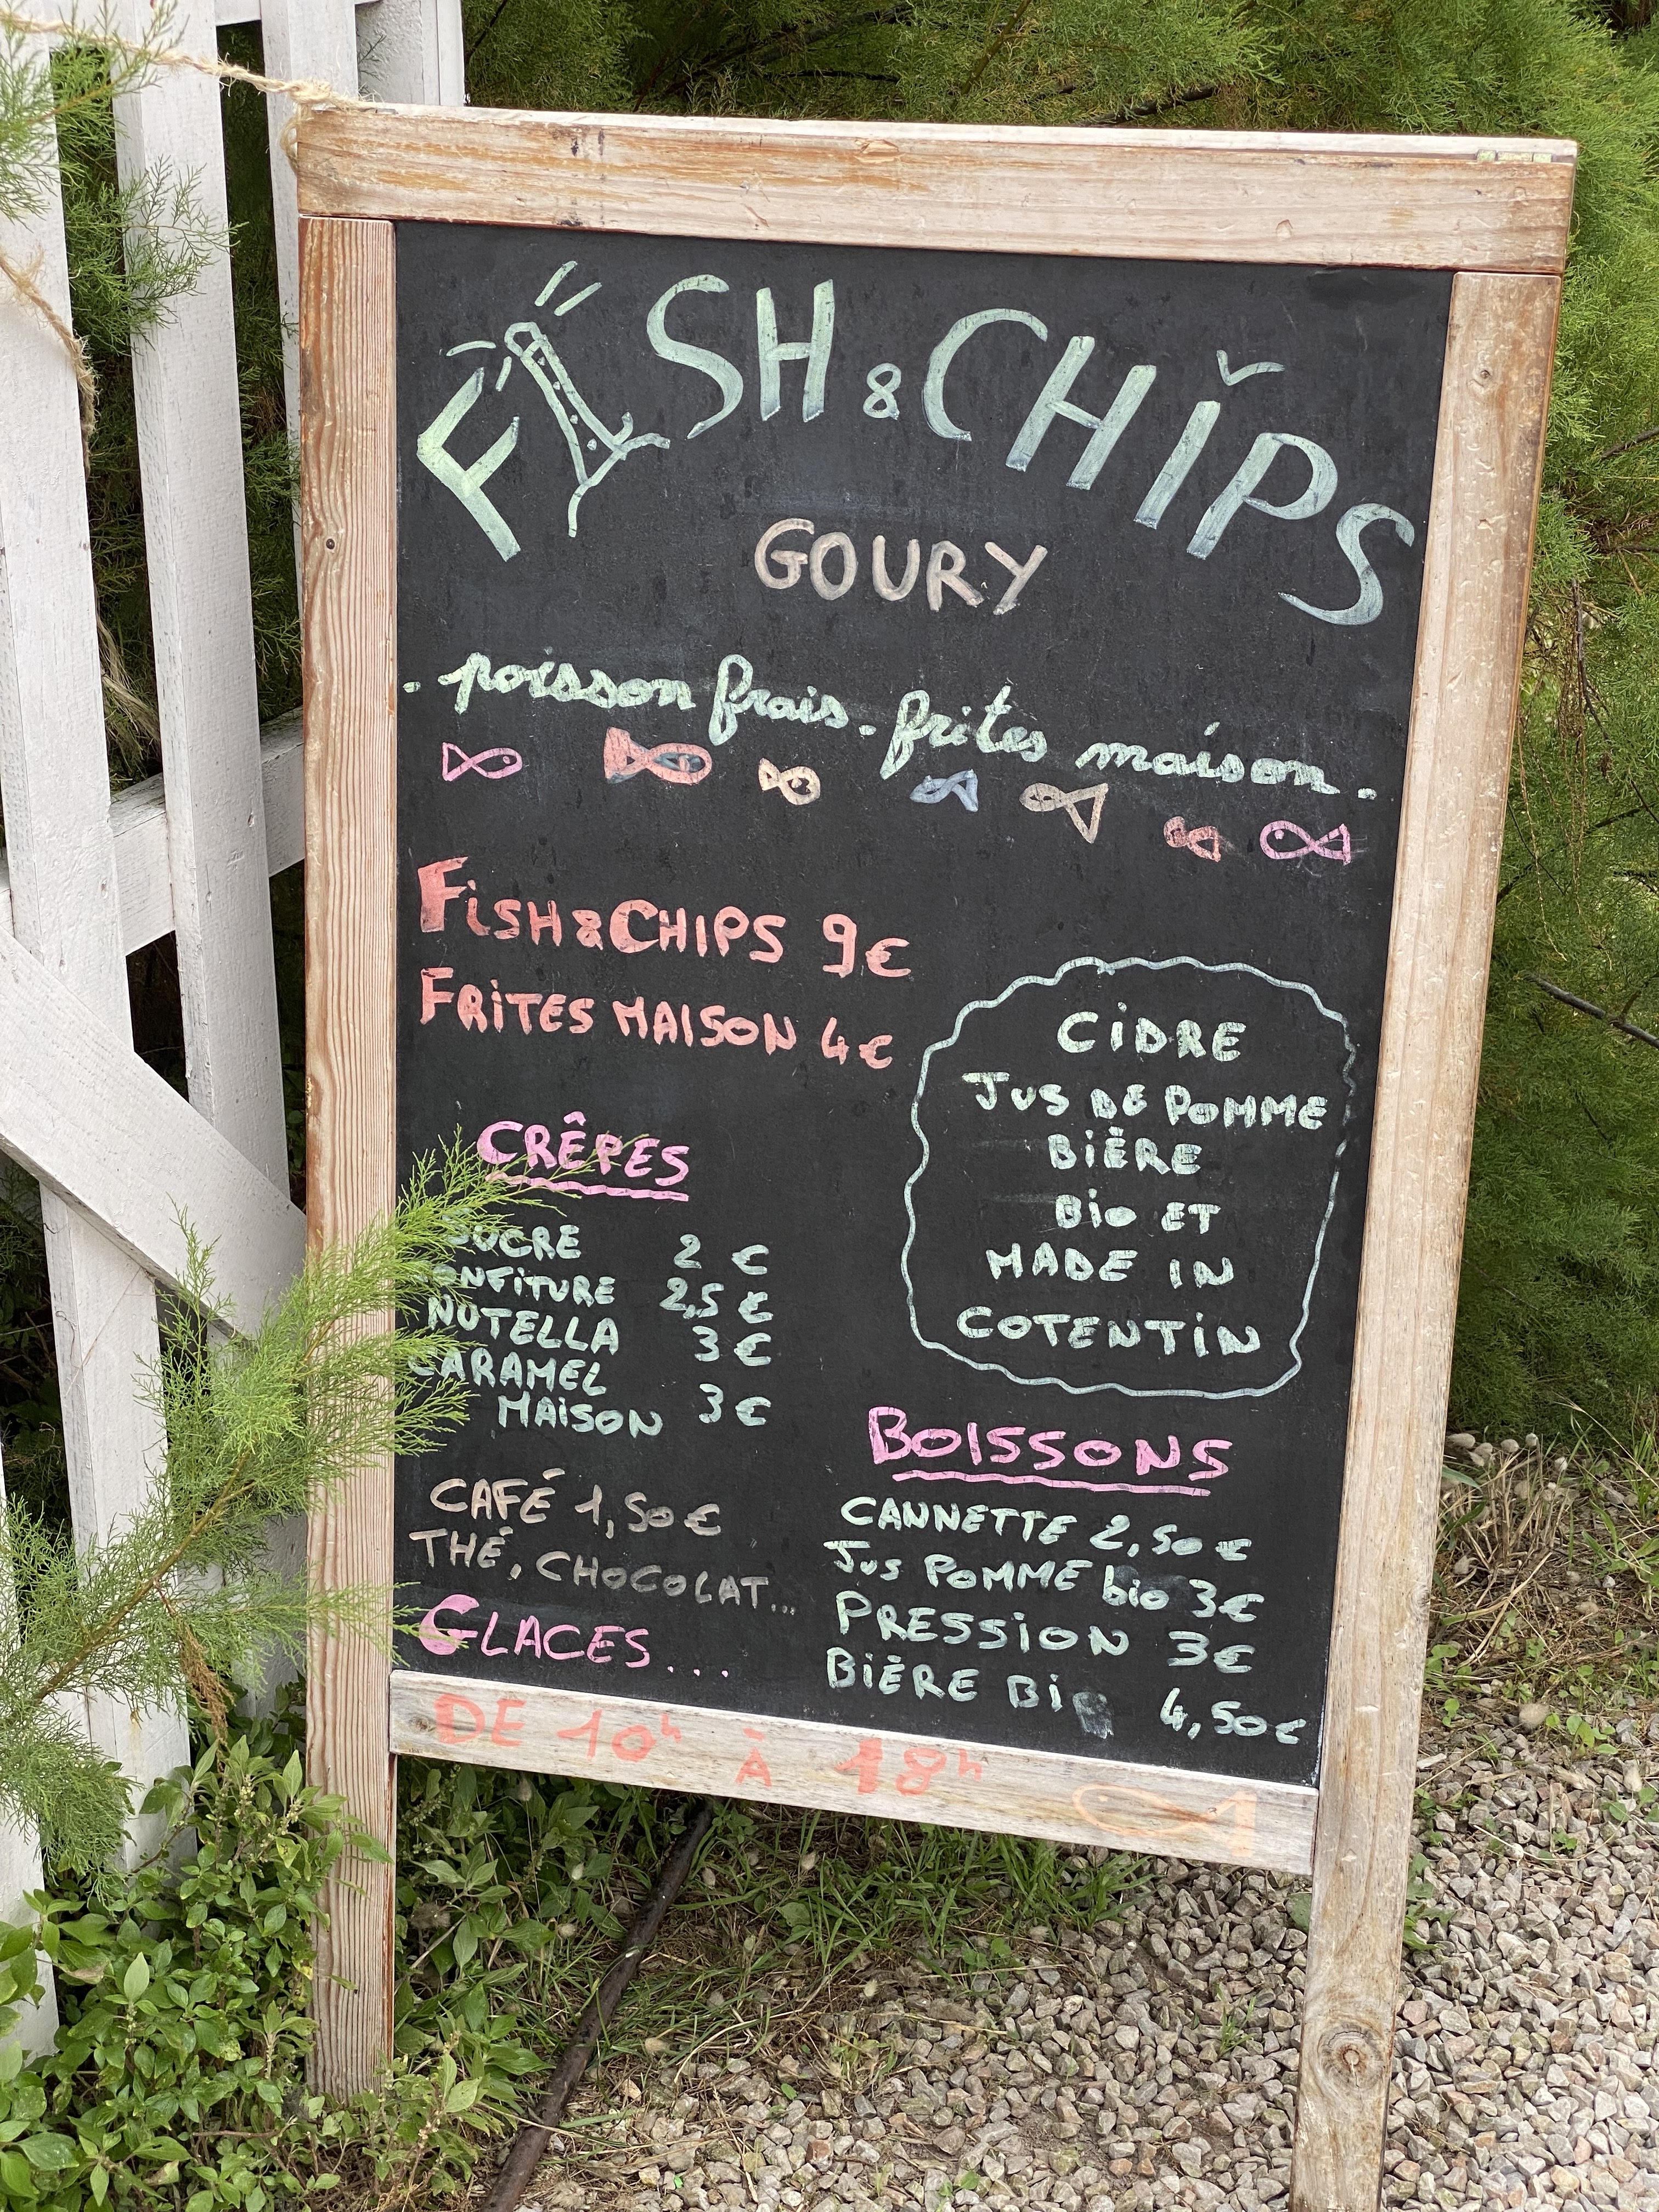 FISH & CHIPS
GOURY
. poisson frais . frites maison .
FiSH & CHIPS 9€
FRiTES MAISON 4€
CiDRE
JUS DE POMME
BiÈRE
Bio ET
MADE IN
COTENTiN
CRÊPES
SUCRE 2 €
CONFiTURE 2,5 €
NUTELLA 3 €
CARAMEL
MAiSON 3 €
CAFÉ 1,50 €
THÉ, CHOCOLAT...
GLACES...
BOISSONS
CANNETTE 2,50 €
JUS POMME bio 3€
PRESSiON 3€
BiÈRE Bio 4,50€
DE 10h À 18h